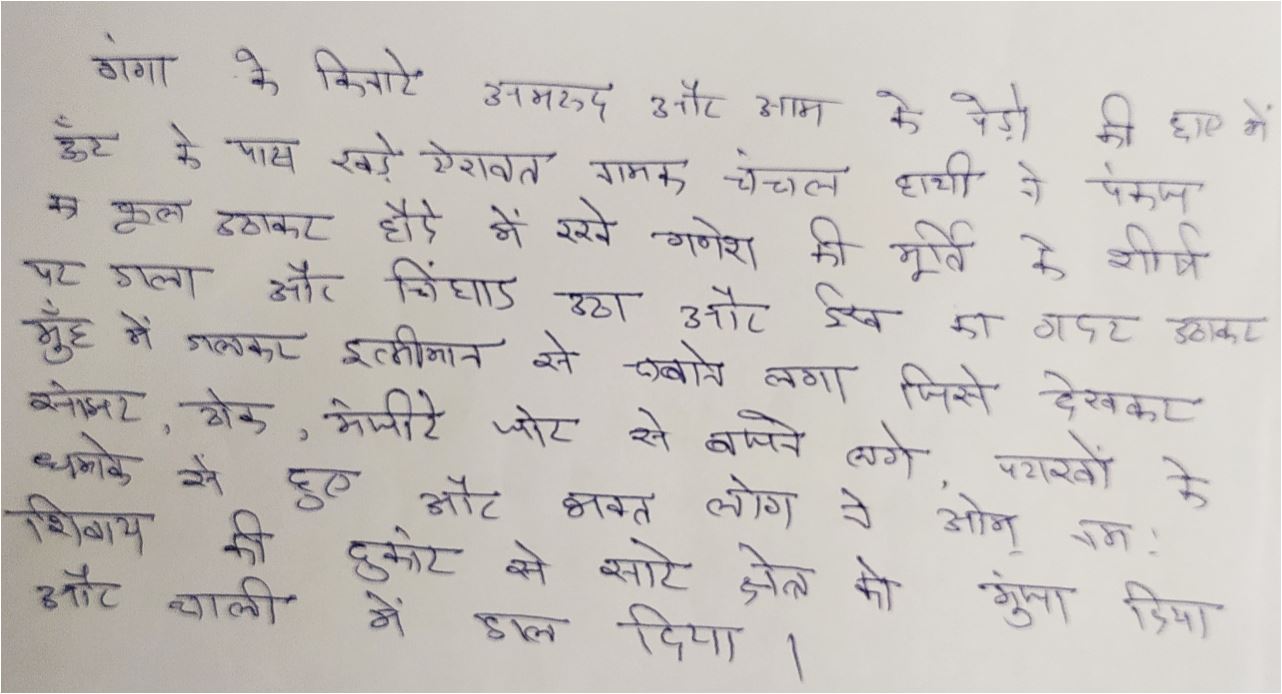 गंगा के किनारे अमरुद और आम के पेड़ो की छाए में
ऊँट के पास खड़े ऐरावत नामक चंचल हाथी ने पंकज
का फूल उठाकर हौदे में रखे गणेश की मूर्ति के शीर्ष
पर डाला और चिंघाड उठा और ईख का गट्ठर उठाकर
मुँह में डालकर इत्मीनान से चबाने लगा जिसे देखकर
मंजीरे जोर से बजने लगे, पटाखों के
धमाके से हुए और भक्त लोग ने ओम् नम:
शिवाय की हुकांर से सारे क्षेत्र को गुंजा दिया
और थाली में डाल दिया।